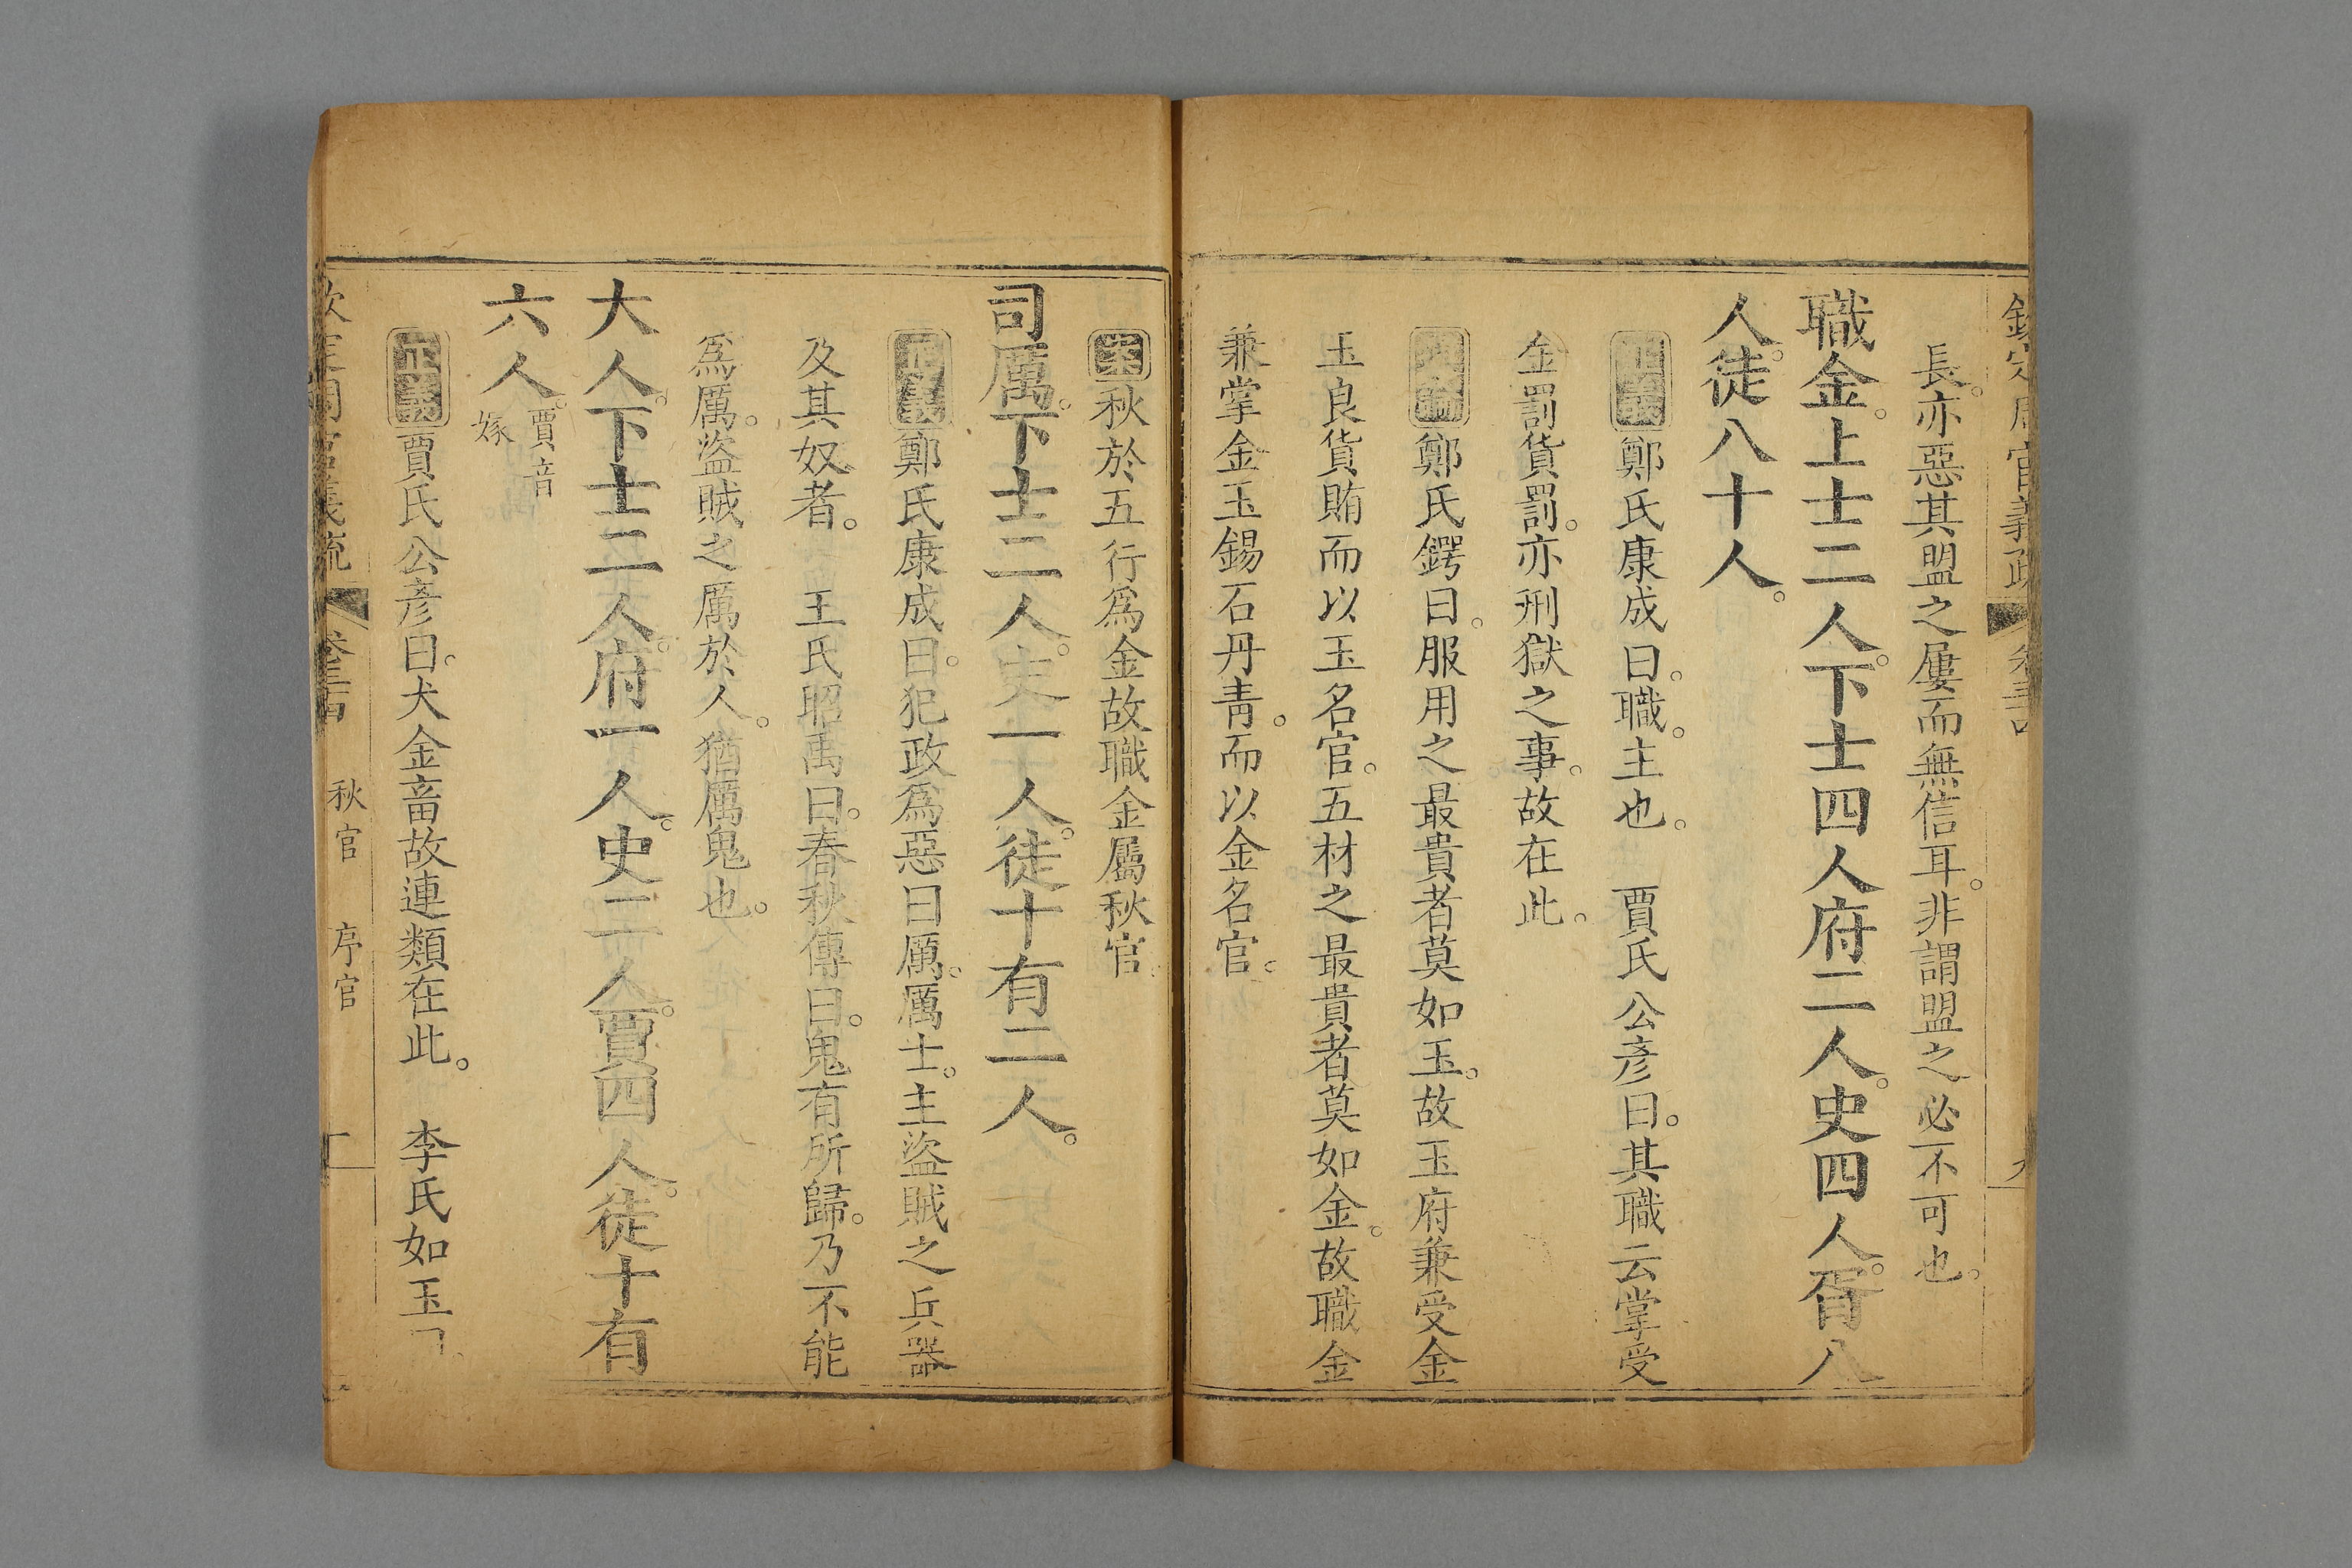 欽定周官義疏 卷三十四 九
長。亦惡其盟之屢而無信耳。非謂盟之必不可也。
職金。上士二人。下士四人府二人。史四人。胥八
人。徒八十人。
正義鄭氏康成曰。職。主也。 賈氏公彥曰。其職云掌受
金罰貨罰。亦刑獄之事。故在此。
通論鄭氏鍔曰。服用之最貴者莫如玉。故玉府兼受金
玉良貨賄而以玉名官。五材之最貴者莫如金。故職金
兼掌金玉錫石丹靑。而以金名官。
案秋於五行爲金故職金屬秋官。
司厲。下士二人。史一人。徒十有二人。
正義鄭氏康成曰。犯政爲惡曰厲。厲士。主盜賊之兵器
及其奴者。 王氏昭禹曰。春秋傳曰。鬼有所歸。乃不能
爲厲。盜賊之厲於人。猶厲鬼也。
犬人。下士二人。府一人。史二人。賈四人。徒十有
六人。賈音
嫁
正義賈氏公彥曰。犬金畜故連類在此。 李氏如玉
欽定周官義疏 卷三十四 秋官 序官